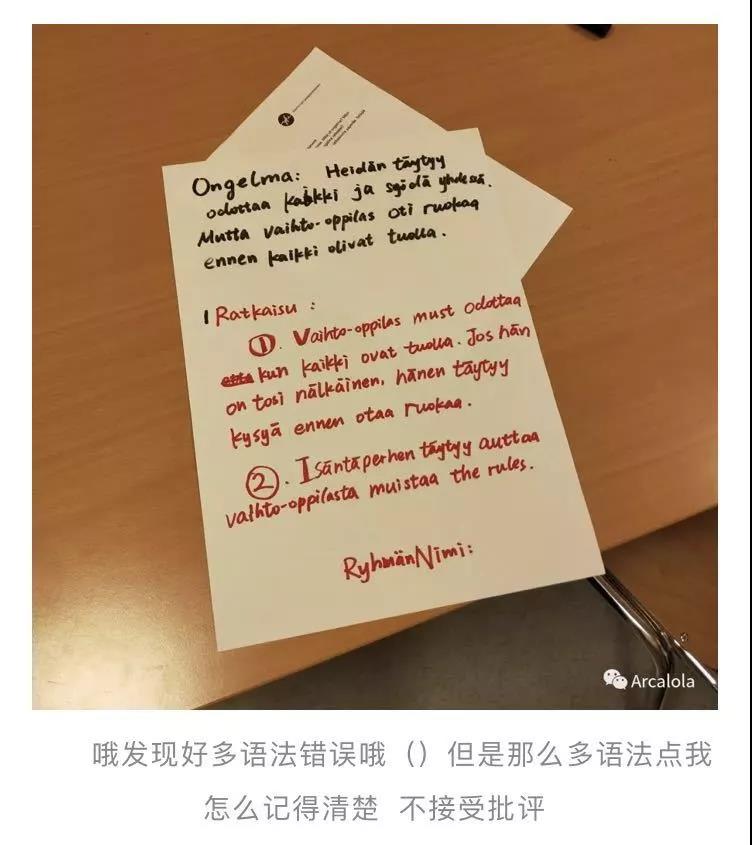 Ongelma: Heidän täytyy
odottaa kaikki ja syödä yhdessä.
Mutta vaihto-oppilas oti ruokaa
ennen kaikki olivat tuolla.
Ratkaisu :
①. Vaihto-oppilas must odottaa
kun kaikki ovat tuolla. Jos hän
on tosi nälkäinen, hänen täytyy
kysyä ennen otaa ruokaa.
②. Isäntäperhen täytyy auttaa
vaihto-oppilasta muistaa the rules.
Ryhmän Nimi:
Arcalola
哦发现好多语法错误哦（）但是那么多语法点我
怎么记得清楚 不接受批评